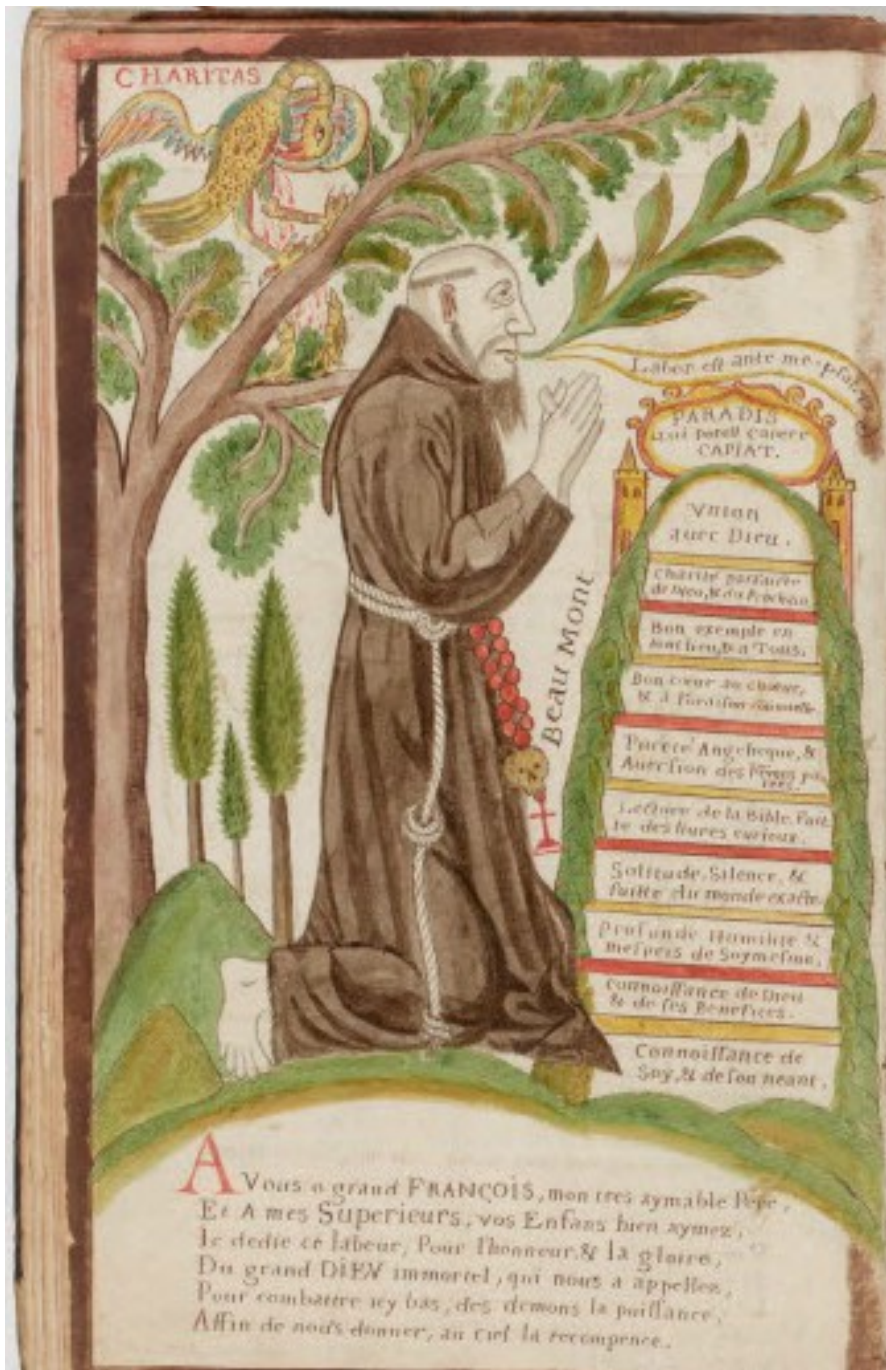 CHARITAS
Labor est ante me
PARADIS
qui potest capere
CAPIAT.
Vnion
auec Dieu.
Charité parfaicte
de Dieu, & du Prochain
Bon exemple en
tout lieu, & a Tous.
Bon cœur au chœur,
& à l'oraison
Pureté Angelique, &
Auersion des
Lecture de la Bible. Fuit
te des liures curieux.
Solitude, Silence, &
fuitte du monde exacte.
Profunde Humilité &
mespris de Soymesme.
Connoissance de Dieu
& de ses Benefices.
Connoissance de
Soy, & de son neant.
Beau Mont
A Vous o grand FRANÇOIS, mon tres aymable Pere,
Et A mes Superieurs, vos Enfans bien aymez,
Ie dedie ce labeur, Pour l'honneur, & la gloire,
Du grand DIEV immortel, qui nous a appellez,
Pour combattre icy bas, des demons la puissance,
Affin de nous donner, au ciel la recompence.